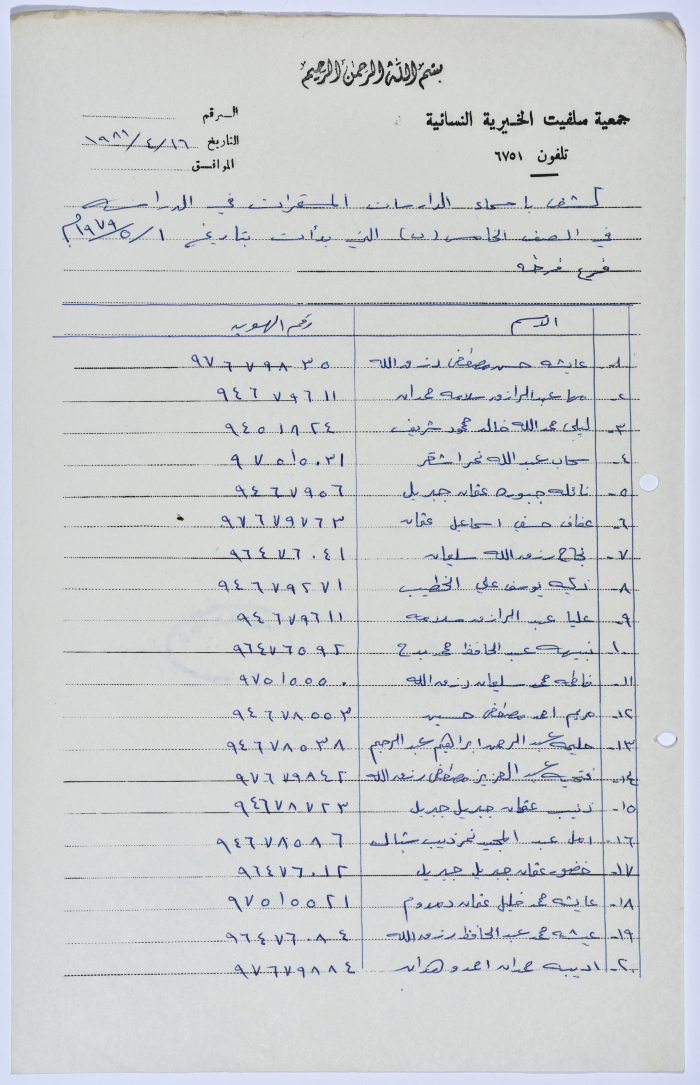 بسم الله الرحمن الرحيم
جمعية سلفيت الخيرية النسائية
تلفون ٦٧٥١
الرقم
التاريخ ١٦/٤/١٩٨١
الموافق
كشف باسماء الدارسات المستمرات في الدراسة
في الصف الخامس (ب) التي بدأت بتاريخ ١/٥/١٩٧٩م
فرع فرخه
الاسم رقم الهوية
١- عايشه حسن مصطفى رزق الله ٩٧٦٧٩٨٣٥
٢- مها عبد الرازق سلامه حمدان ٩٤٦٧٩٦١١
٣- ليلى عبد الله خالد محمود شريف ٩٤٥١٨٢٤
٤- سحاب عبد الله نمر اشقر ٩٧٥١٥٠٣١
٥- نائله جبوره عثمان جبريل ٩٤٦٧٩٥٦
٦- عفاف حسني اسماعيل عثمان ٩٧٦٧٩٧٦٣
٧- نجاح رزق الله سليمان ٩٦٤٧٦٠٤١
٨- زكيه يوسف علي الخطيب ٩٤٦٧٩٢٧١
٩- عليا عبد الرازق سلامه ٩٤٦٧٩٦١١
١٠- نبيهه عبد الحافظ محمد ٩٦٤٧٦٥٩٢
١١- فاطمه محمد سليمان رزق الله ٩٧٥١٥٥٥٠
١٢- مريم احمد مصطفى حسين ٩٤٦٧٨٥٥٣
١٣- حليمه عبد الرحمن ابراهيم عبد الرحيم ٩٤٦٧٨٥٣٨
١٤- فتحيه عبد العزيز مصطفى رزق الله ٩٧٦٧٩٨٤٢
١٥- زينب عثمان جبريل جبريل ٩٤٦٧٨٧٢٣
١٦- امل عبد المجيد نمر ذيب ٩٤٦٧٨٥٨٦
١٧- خضره عثمان جبريل جبريل ٩٦٤٧٦٠١٢
١٨- عايشه محمد خليل عثمان ٩٧٥١٥٥٢١
١٩- عيشه محمد عبد الحافظ رزق الله ٩٦٤٧٦٠٨٤
٢٠- اديبه حمدان احمد حمدان ٩٧٦٧٩٨٨٤